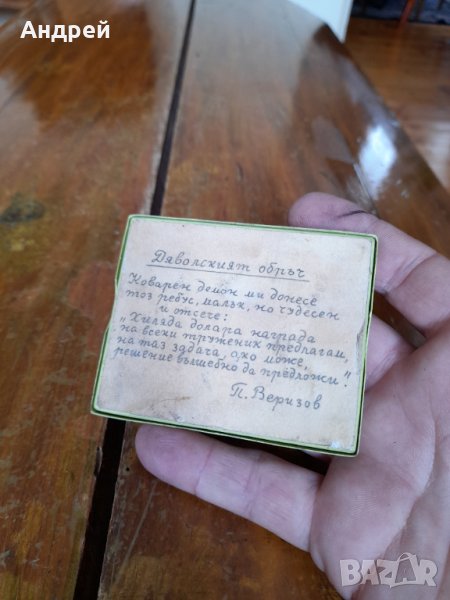 Андрей
Дяволският обръч
Коварен демон ми донесе
тоз ребус, малък, но чудесен
и отсече:
„Хиляда долара награда
на всеки труженик предлагам,
на таз задача, ако може,
решение вълшебно да предложи."
П. Веризов
BAZAR